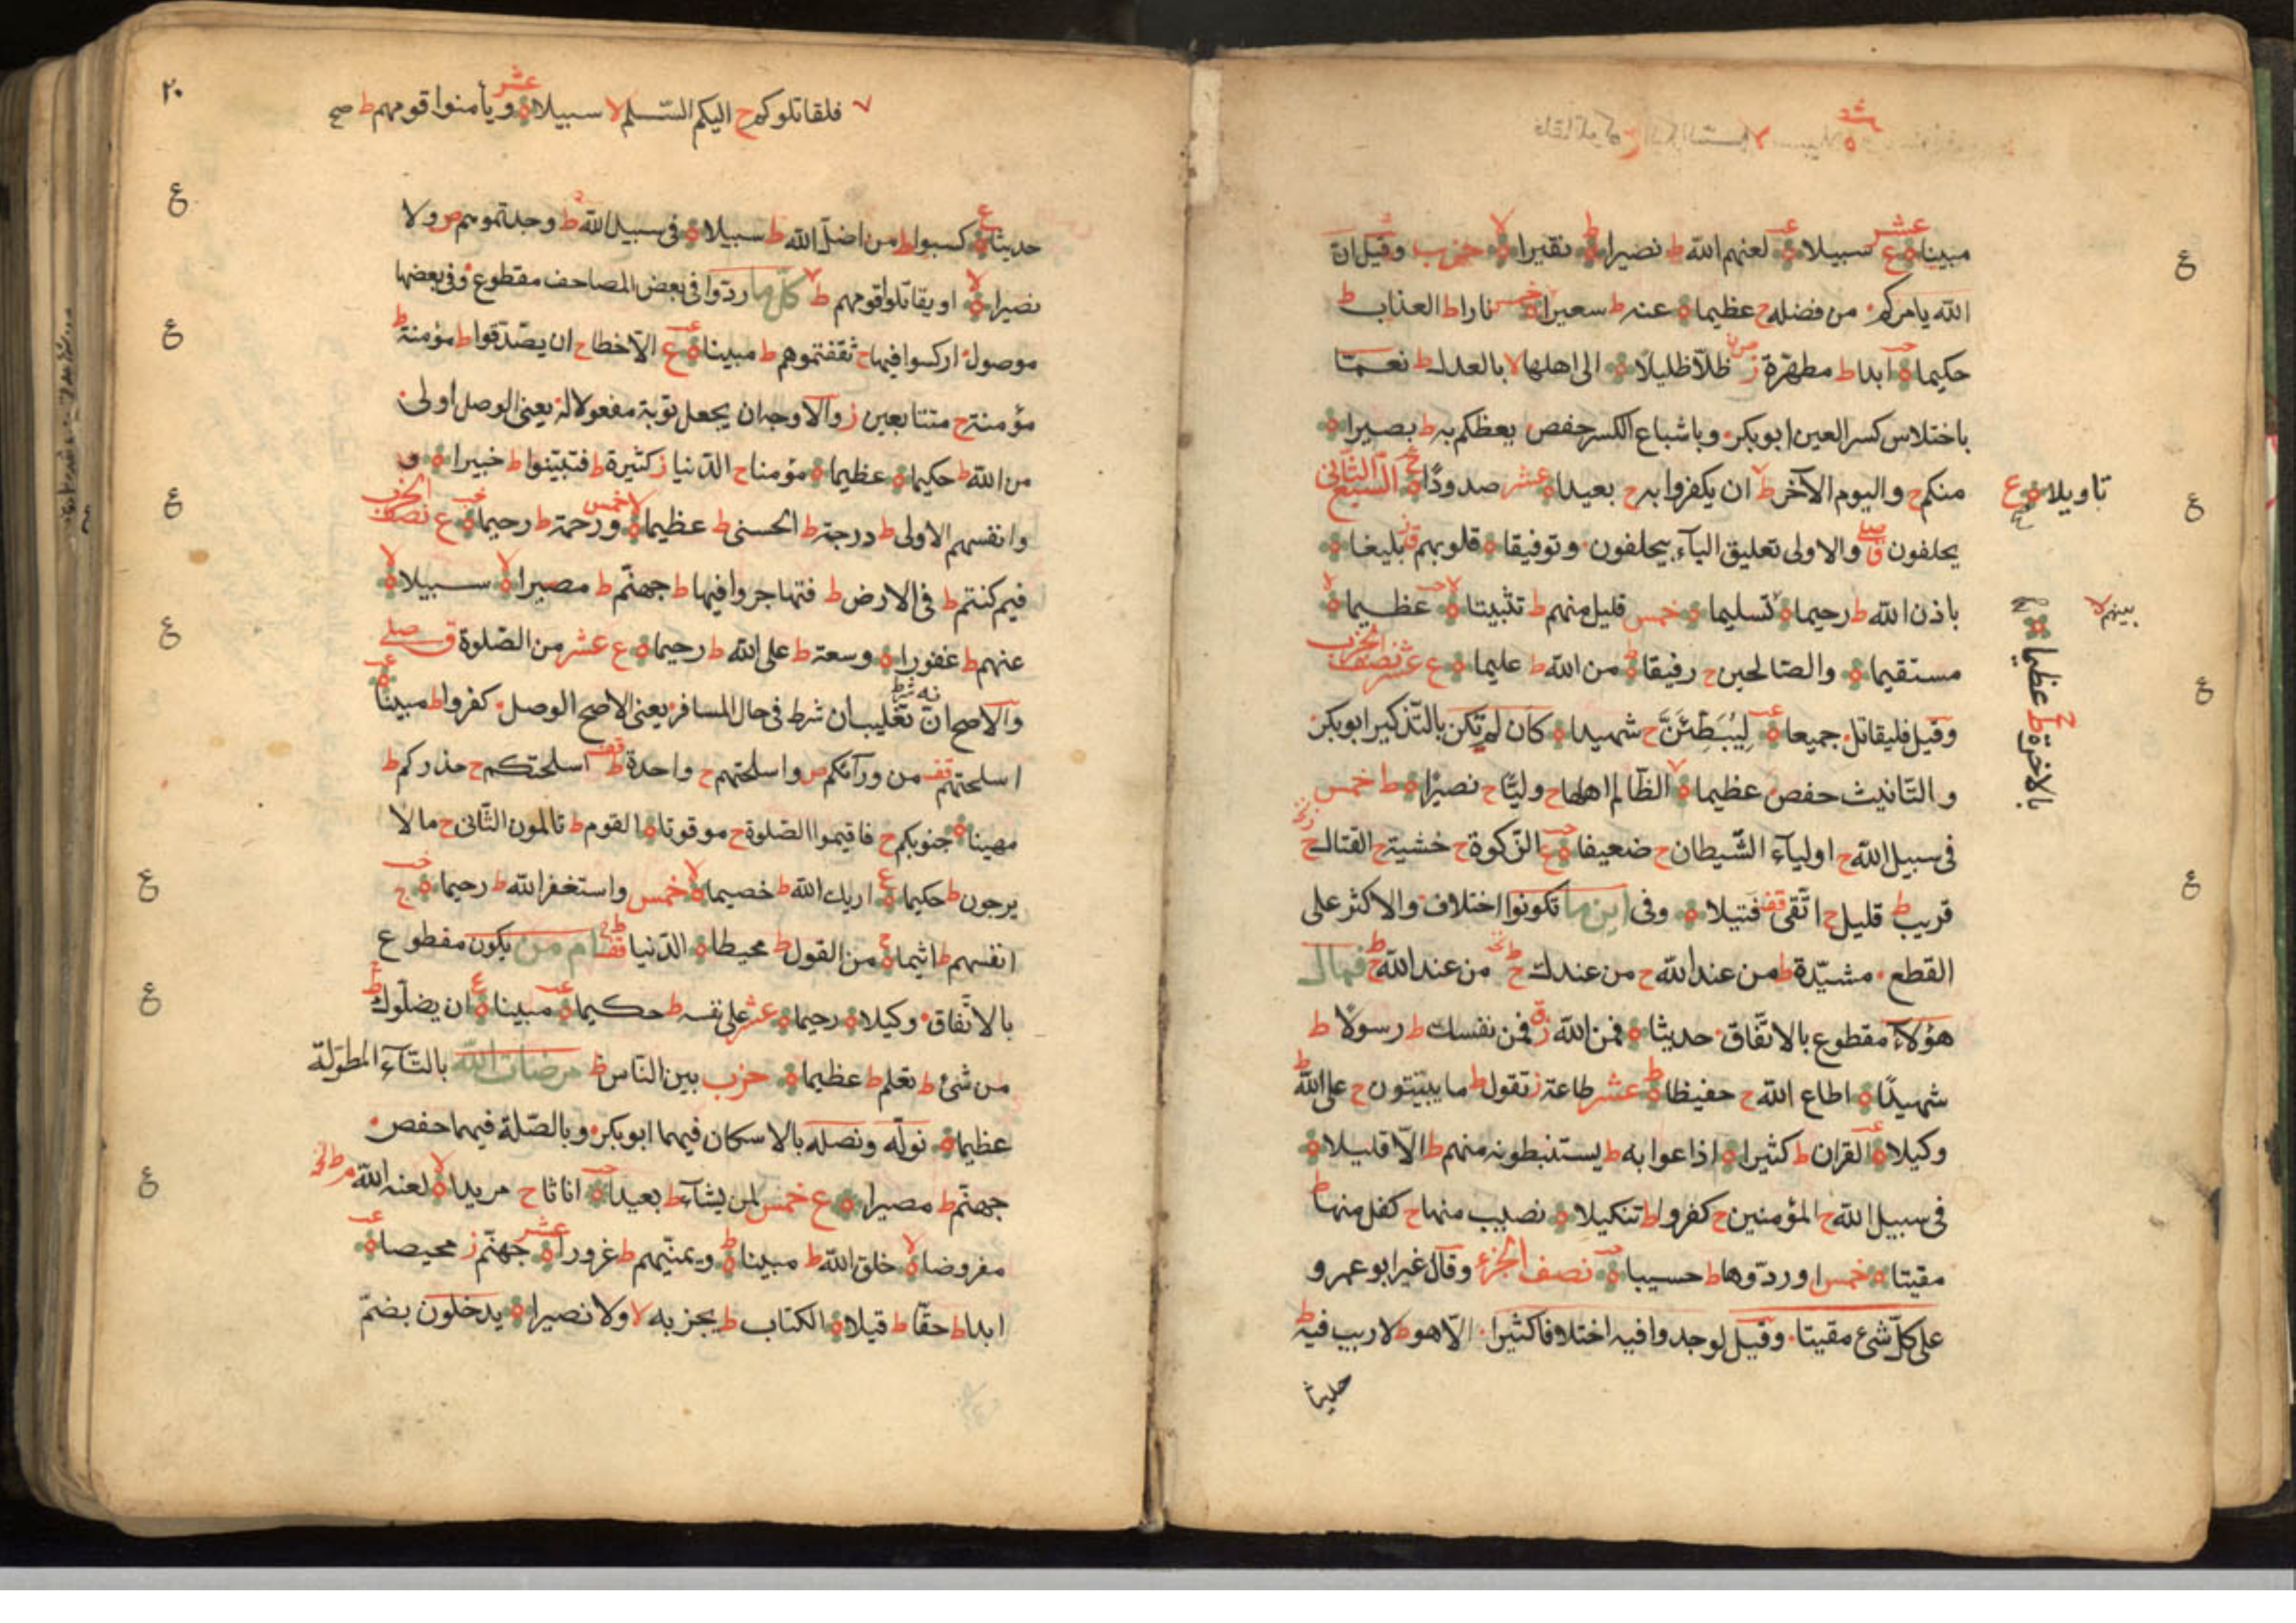 مبينا ه ع عشر سبيلا ه لعنهم الله ط نصيرا ه ط نقيرا ه لا حزب وقيل ان
الله يامركم من فضله ج عظيما ه عنه ط سعيرا ه خمس نارا ط العذاب ط
حكيما ه ابدا ط مطهرة ز ظلا ظليلا ه الى اهلها لا بالعدل ط نعمّا
باختلاس كسر العين ابو بكر وباشباع الكسر حفص يعظكم به ط بصيرا ه
منكم ج واليوم الآخر ط ان يكفروا به ج بعيدا ه عشر صدودًا ه ج السبع الثاني
تاويلا ه ع
يحلفون ق صلے والاولى تعليق الباء بيحلفون وتوفيقا ه قلوبهم ق بليغا ه
باذن الله ط رحيما ه تسليما ه خمس قليل منهم ط تثبيتا ه لا عظيما ه لا
بينهم لا
مستقيما ه والصالحين ج رفيقا ه ط من الله ط عليما ه ع عشر نصف الحزب
وقيل فليقاتل جميعا ه لَيُبَطِّئَنَّ ج شهيدا ه كان لم تكن بالتذكير ابو بكر
و التانيث حفص عظيما ه الظالم اهلها ج وليّا ج نصيرا ه ط خمس
بالاخرة ط عظيما ه
فى سبيل الله ج اولياء الشيطان ج ضعيفا ه ع الزكوة ج خشية ج القتال ج
قريب ط قليل ج اتقى قف فتيلا ه وفى اين ما تكونوا اختلاف والاكثر على
القطع مشيّدة ط من عند الله ج من عندك ط ج من عند الله ط ج فمال
هؤلاء مقطوع بالاتفاق حديثا ه فمن الله ز فمن نفسك ط رسولا ط
شهيدًا ه اطاع الله ج حفيظا ه ط عشر طاعة ز تقول ط ما يبيّتون ج على الله ط
وكيلا ه القران ط كثيرا ه اذاعوا به ط يستنبطونه منهم ط الّا قليلا ه
فى سبيل الله ج المؤمنين ج كفروا ط تنكيلا ه نصيب منها ج كفل منها ط
مقيتا ه خمس او ردّوها ط حسيبا ه نصف الجزء وقال غير ابو عمرو
على كلّ شئ مقيتا وقيل لوجدوا فيه اختلافا كثيرا الّا هو ط لا ريب فيه ط
حديثا
٢٠
فلقاتلوكم ج اليكم السّلم لا سبيلا ه عشر ويأمنوا قومهم ط صح
حديثا ه ع كسبوا ط من اضلّ الله ط سبيلا ه فى سبيل الله ط وجدتموهم ص ولا
نصيرا ه لا او يقاتلوا قومهم ط كلّ ما ردّوا فى بعض المصاحف مقطوع وفى بعضها
موصول اركسوا فيها ج ثقفتموهم ط مبينا ه ع الّا خطا ج ان يصّدّقوا ط مؤمنة ط
مؤمنة ج متتابعين ز والاوجه ان يجعل توبة مفعولا له يعنى الوصل اولى
من الله ط حكيما ه عظيما ه مؤمنا ج الدنيا ز كثيرة ط فتبيّنوا ط خبيرا ه و
وانفسهم الاولى ط درجة ط الحسنى ط عظيما ه لا خمس ورحمة ط رحيما ه ع نصف الحزب
فيم كنتم ط فى الارض ط فتهاجروا فيها ط جهنّم ط مصيرا ه لا سبيلا ه لا
عنهم ط غفورا ه وسعة ط على الله ط رحيما ه ع عشر من الصّلوة ق صلے
والاصح ان تغليبان شرط فى حال المسافر يعنى الاصح الوصل كفروا ط مبينا ه
اسلحتهم قف من ورآئكم ص واسلحتهم ج واحدة ط قف اسلحتكم ج حذركم ط
مهينا ه جنوبكم ج فاقيموا الصّلوة ج موقوتا ه القوم ط تالمون الثّانى ج ما لا
يرجون ط حكيما ه ع اريك الله ط خصيما ه لا خمس واستغفر الله ط رحيما ه ج
انفسهم ط اثيما ه ج من القول ط محيطا ه الدّنيا قف ام من يكون مقطوع
بالاتّفاق وكيلا ه رحيما ه عشر على نفسه ط حكيما ه مبينا ه ع ان يضلّوك ط
من شئ ط تعلم ط عظيما ه حزب بين النّاس ط مرضات الله بالتّآء المطوّلة
عظيما ه نولّه ونصله بالاسكان فيهما ابو بكر وبالصّلة فيهما حفص
جهنّم ط مصيرا ه ع خمس لمن يشآء ط بعيدا ه اناثا ج مريدا ه لا لعنه الله م ط
مفروضا ه لا خلق الله ط مبينا ه ط ويمنّيهم ط غرورا ه عشر جهنّم ز محيصا ه
ابدا ط حقّا ط قيلا ه الكتاب ط يجز به لا ولا نصيرا ه يدخلون بضمّ